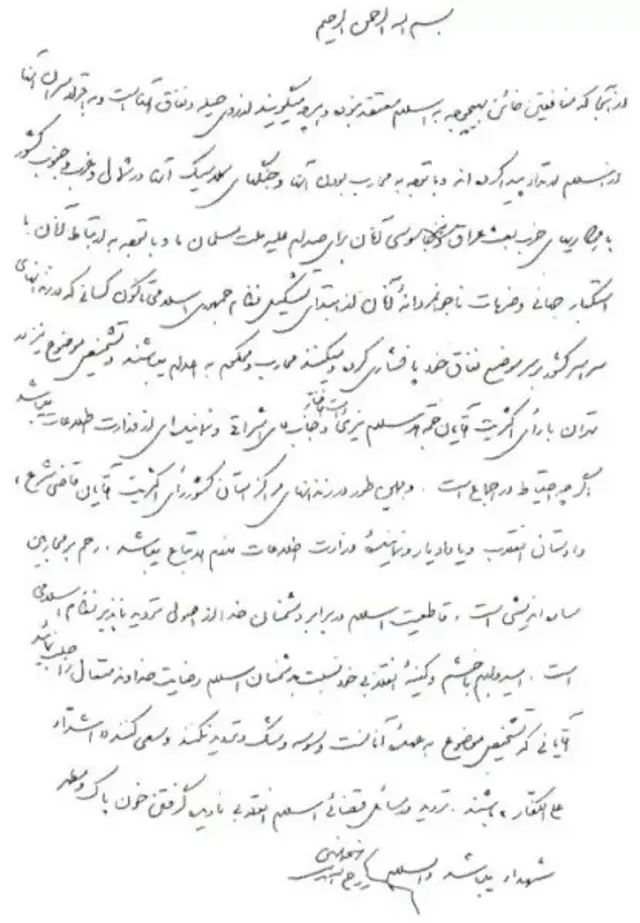 بسم الله الرحمن الرحیم
از آنجا که منافقین خائن بهیچوجه به اسلام معتقد نبوده و هر چه میگویند از روی حیله و نفاق آنهاست و به اقرار سران آنها
از اسلام ارتداد پیدا کرده‌اند و با توجه به محارب بودن آنها و جنگهای کلاسیک آنها در شمال و غرب و جنوب کشور
با همکاریهای حزب بعث عراق و نیز جاسوسی آنان برای صدام علیه ملت مسلمان ما و با توجه به ارتباط آنان با
استکبار جهانی و ضربات ناجوانمردانهٔ آنان از ابتدای تشکیل نظام جمهوری اسلامی تا کنون کسانی که در زندانهای
سراسر کشور بر سر موضع نفاق خود پافشاری کرده و میکنند محارب و محکوم به اعدام میباشند و تشخیص موضوع نیز در
تهران با رأی اکثریت آقایان حجةالاسلام نیری دامت افاضاته و جناب آقای اشراقی و نماینده‌ای از وزارت اطلاعات میباشد
اگر چه احتیاط در اجماع است . و همین طور در زندانهای مراکز استان کشور رأی اکثریت آقایان قاضی شرع ،
دادستان انقلاب و یا دادیار و نمایندهٔ وزارت اطلاعات لازم الاتباع میباشد . رحم بر محاربین
ساده‌اندیشی است ، قاطعیت اسلام در برابر دشمنان خدا از اصول تردید ناپذیر نظام اسلامی
است . امیدوارم با خشم و کینهٔ انقلابی خود نسبت به دشمنان اسلام رضایت خداوند متعال را جلب نمائید
آقایانی که تشخیص موضوع به عهدهٔ آنان است وسوسه و شک و تردید نکنند و سعی کنند « اشداء
علی الکفار » باشند . تردید در مسائل قضائی اسلام انقلابی نادیده گرفتن خون پاک و مطهر
شهداء میباشد والسلام روح الله الموسوی الخمینی